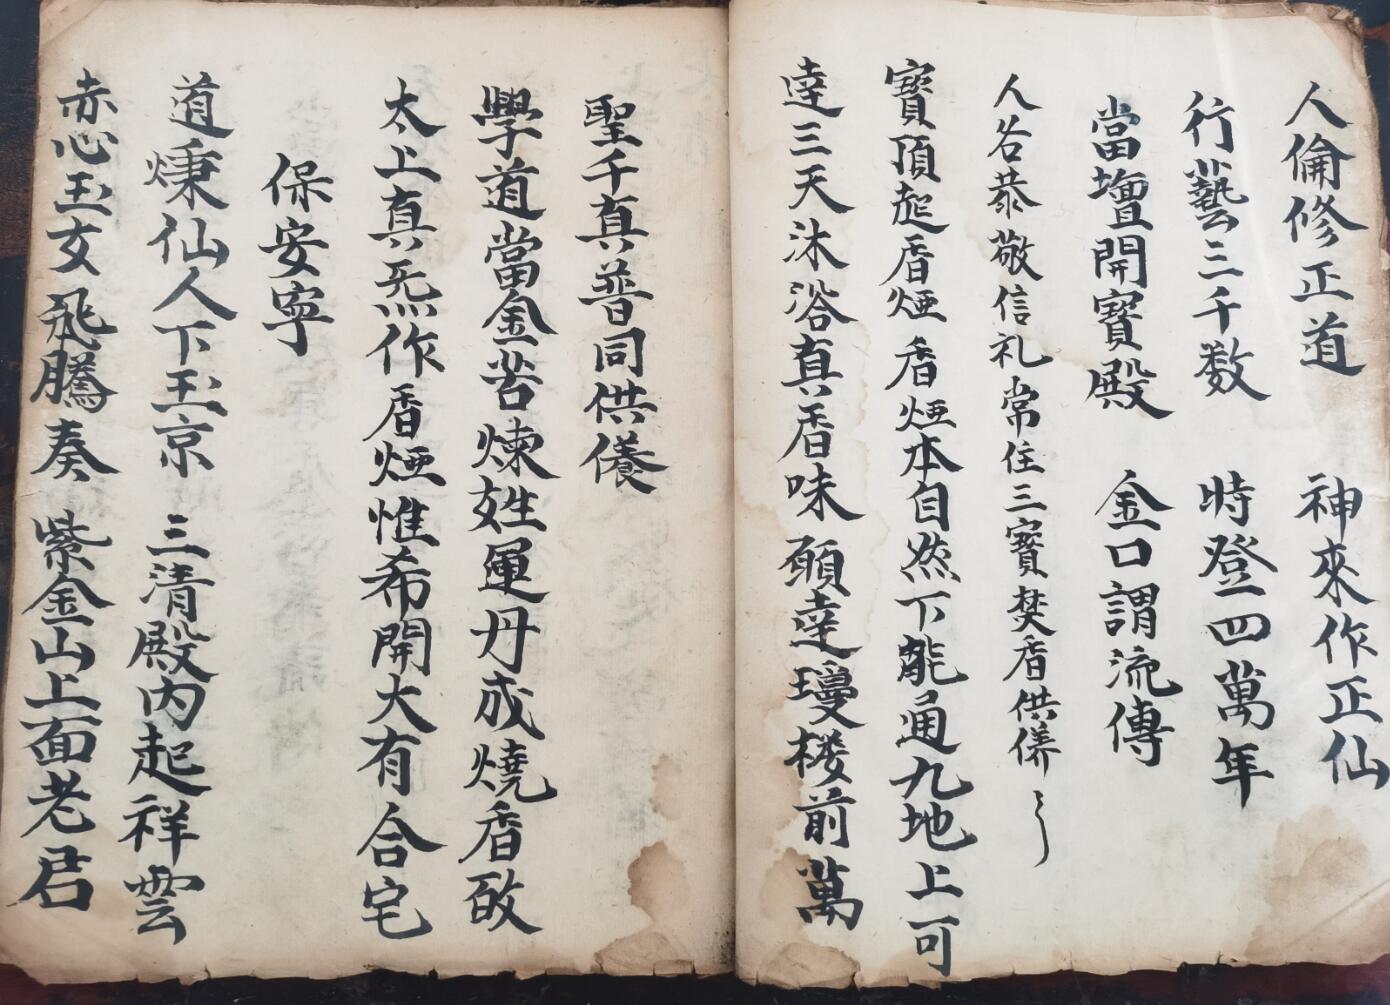 人倫修正道　神來作正仙
行藝三千数　時登四萬年
當壇開寶殿　金口謂流傳
人各恭敬信礼常住三寶焚香供養
寶頂起香煙香煙本自然下能通九地上可
達三天沐浴真香味願達瓊楼前萬
聖千真普同供養
學道當金苦煉姓運丹成燒香啟
太上真炁作香煙惟希開大有合宅
保安寧
道煉仙人下玉京　三清殿内起祥雲
赤心玉女飛騰奏　紫金山上面老君